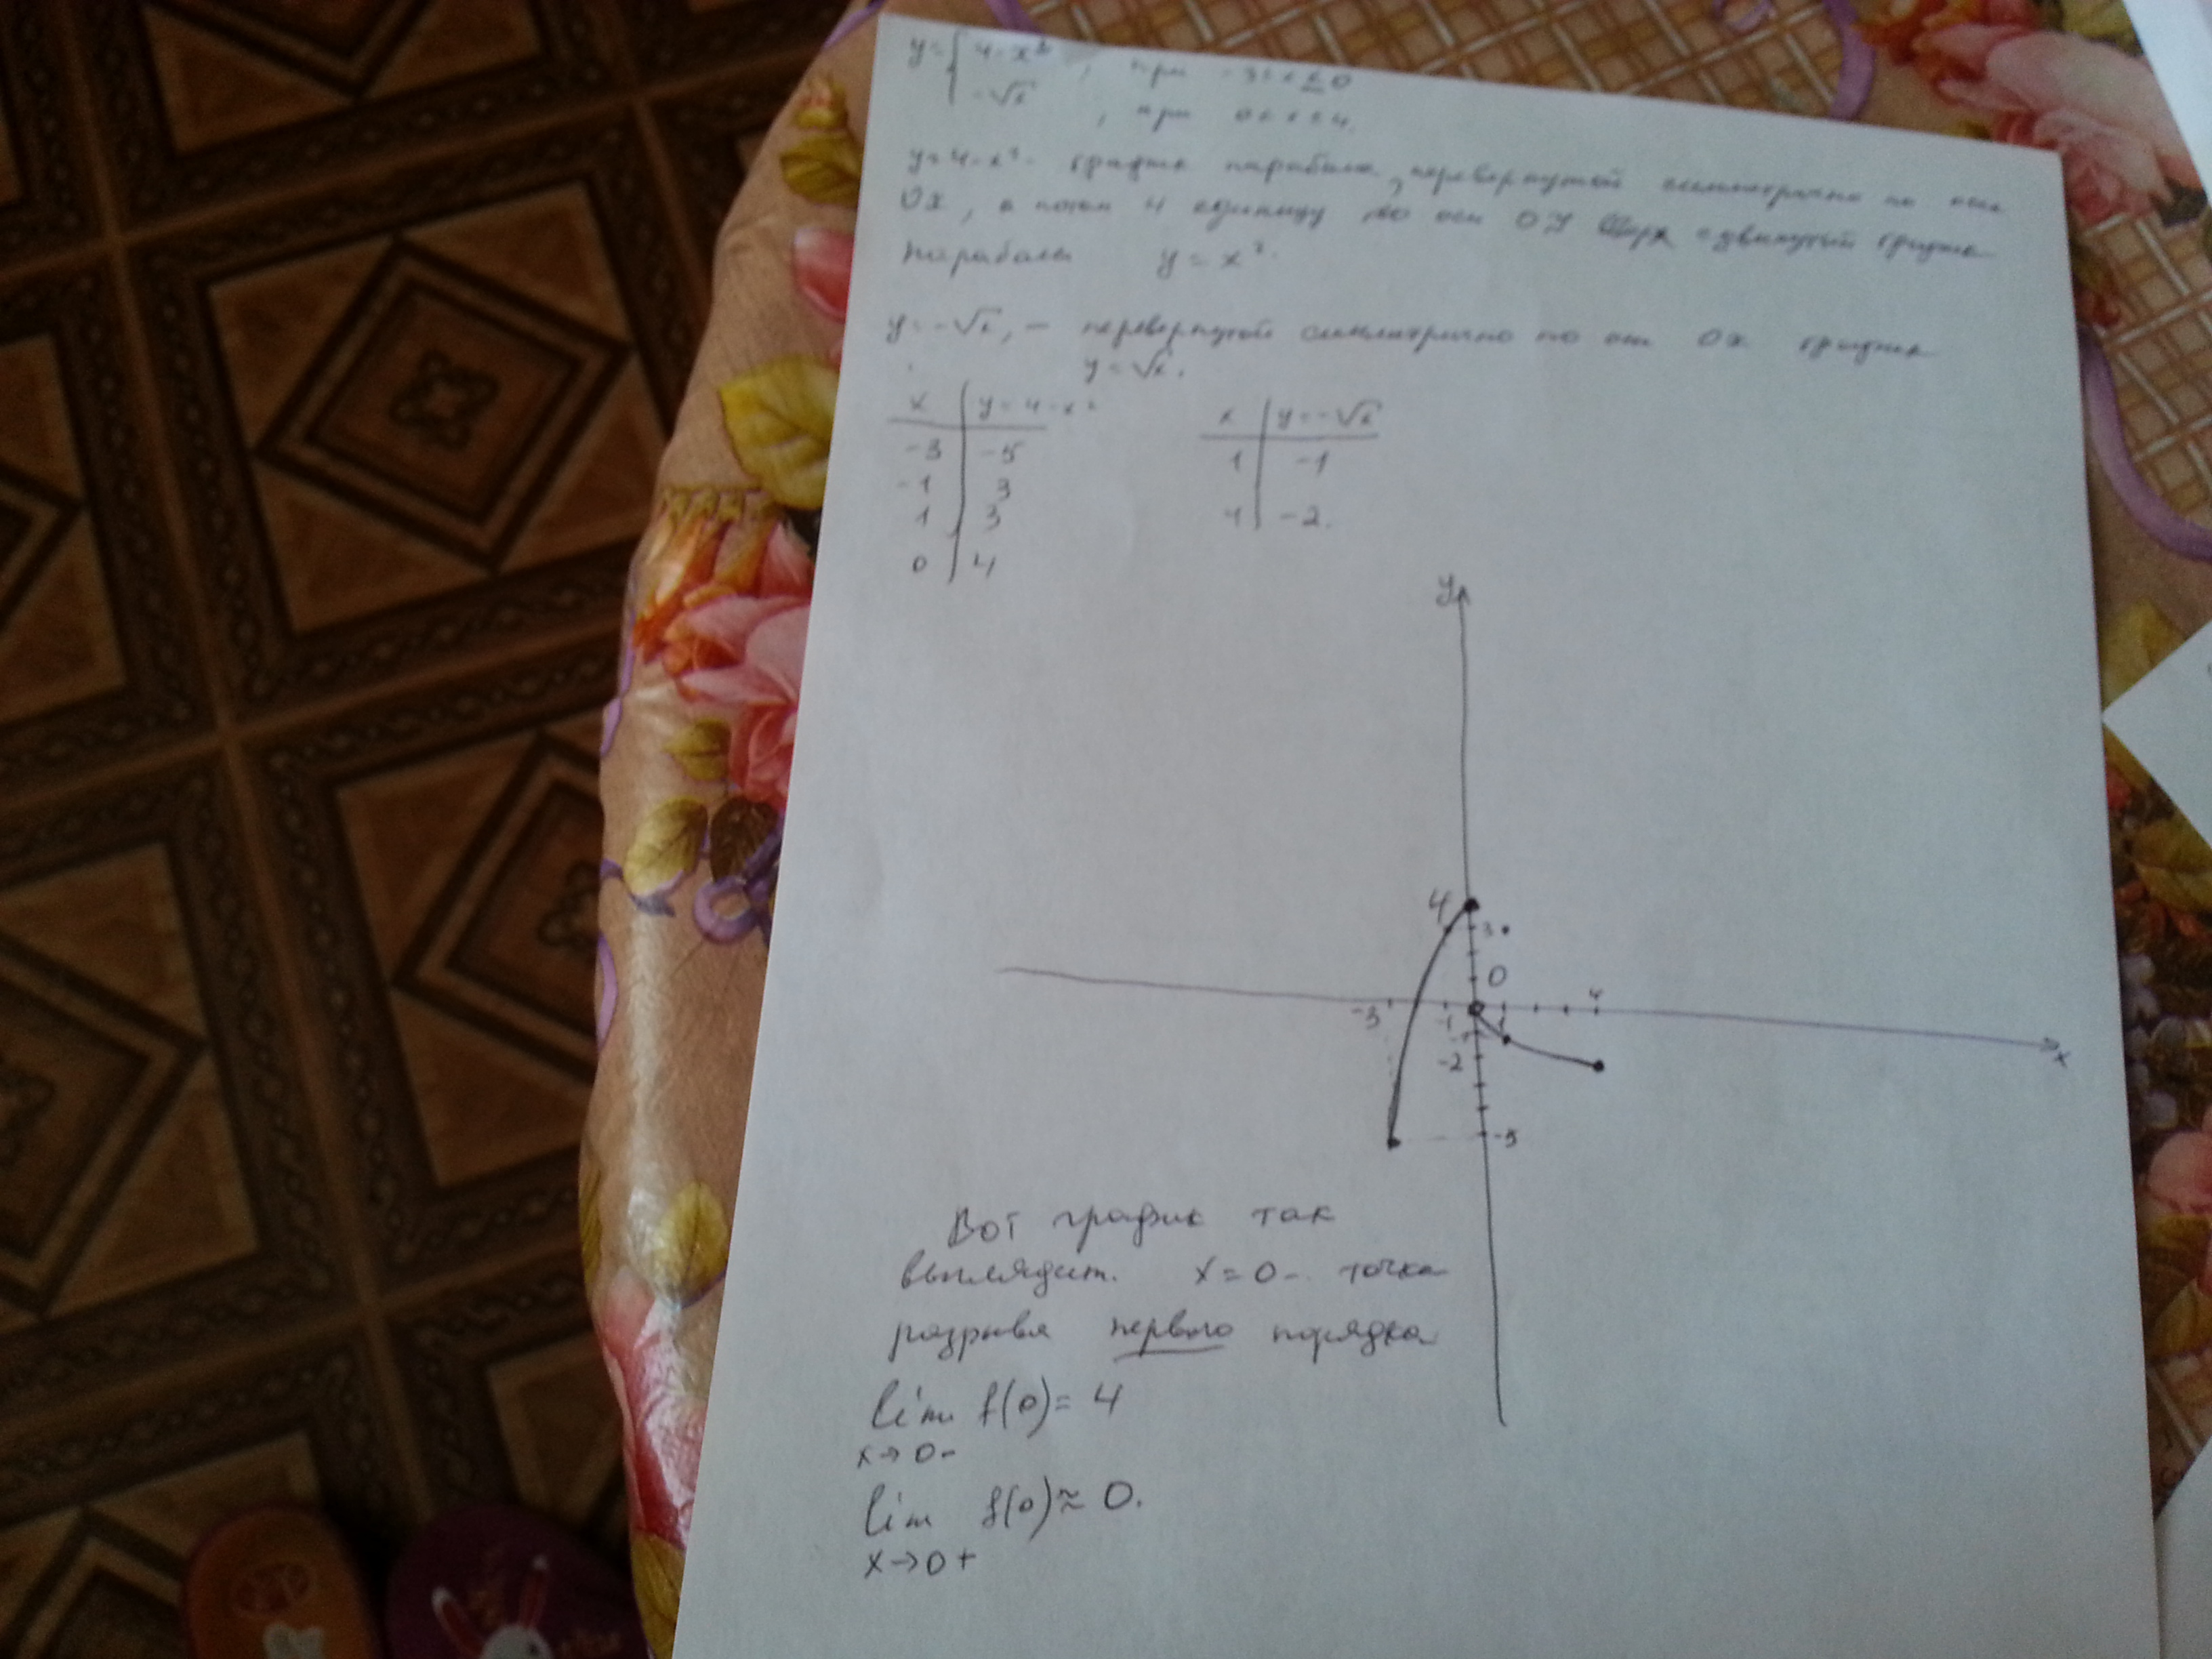 y = { 4-x², при -3≤x≤0
-√x, при 0<x≤4.
y=4-x² - график параболы, перевернутый симметрично по оси
OX, а потом 4 единицу по оси OY сдвинутый график
параболы y = x².
y=-√x, - перевернутый симметрично по оси OX график
y=√x.
x | y=4-x²
-3 | -5
-1 | 3
1 | 3
0 | 4
x | y=-√x
1 | -1
4 | -2.
y
4
3
0
-3 -1 1 4
-1
x
-2
-5
Вот график так
выглядит. x=0- точка
разрыва первого порядка
lim f(0)= 4
x→0-
lim f(0)≈ 0.
x→0+